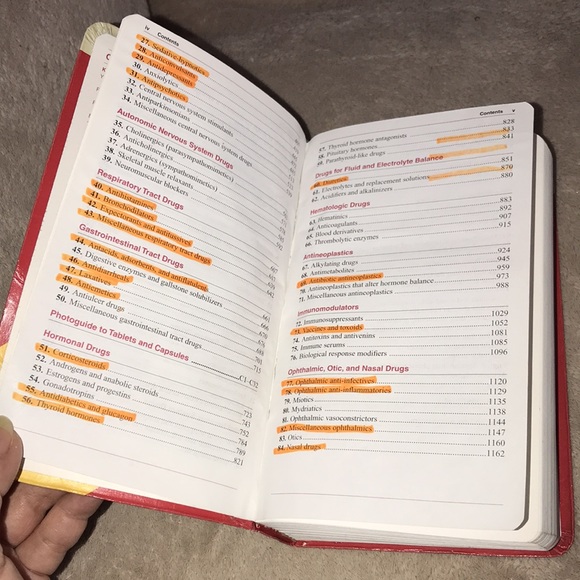 iv Contents
27. Sedative-hypnotics
28. Anticonvulsants
29. Antidepressants
30. Anxiolytics
31. Antipsychotics
32. Central nervous system stimulants
33. Antiparkinsonians
34. Miscellaneous central nervous system drugs
Autonomic Nervous System Drugs
35. Cholinergics (parasympathomimetics)
36. Anticholinergics
37. Adrenergics (sympathomimetics)
38. Skeletal muscle relaxants
39. Neuromuscular blockers
Respiratory Tract Drugs
40. Antihistamines
41. Bronchodilators
42. Expectorants and antitussives
43. Miscellaneous respiratory tract drugs
Gastrointestinal Tract Drugs
44. Antacids, adsorbents, and antiflatulents
45. Digestive enzymes and gallstone solubilizers
46. Antidiarrheals
47. Laxatives
48. Antiemetics
49. Antiulcer drugs
50. Miscellaneous gastrointestinal tract drugs
Photoguide to Tablets and Capsules C1-C32
Hormonal Drugs
51. Corticosteroids
52. Androgens and anabolic steroids
53. Estrogens and progestins 723
54. Gonadotropins 741
55. Antidiabetics and glucagon 752
56. Thyroid hormones 764
789
821
Contents v
57. Thyroid hormone antagonists 828
58. Pituitary hormones 833
59. Parathyroid-like drugs 841
Drugs for Fluid and Electrolyte Balance
60. Diuretics 851
61. Electrolytes and replacement solutions 870
62. Acidifiers and alkalinizers 880
Hematologic Drugs
63. Hematinics 883
64. Anticoagulants 892
65. Blood derivatives 907
66. Thrombolytic enzymes 915
Antineoplastics
67. Alkylating drugs 924
68. Antimetabolites 945
69. Antibiotic antineoplastics 959
70. Antineoplastics that alter hormone balance 973
71. Miscellaneous antineoplastics 988
Immunomodulators
72. Immunosuppressants 1029
73. Vaccines and toxoids 1052
74. Antitoxins and antivenins 1081
75. Immune serums 1085
76. Biological response modifiers 1096
Ophthalmic, Otic, and Nasal Drugs
77. Ophthalmic anti-infectives 1120
78. Ophthalmic anti-inflammatories 1129
79. Miotics 1135
80. Mydriatics 1138
81. Ophthalmic vasoconstrictors 1144
82. Miscellaneous ophthalmics 1147
83. Otics 1160
84. Nasal drugs 1162